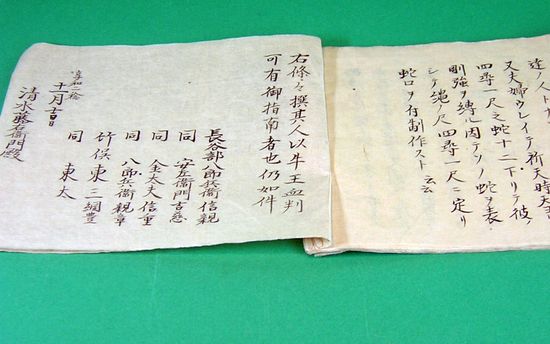 達ノ人
又夫婦ウレイテ祈天時天
四尋一尺之蛇十二下リテ彼ノ
剛強ヲ縛ル因テソノ蛇ヲ表
シテ縄ノ尺四尋一尺ニ定リ
蛇口ヲ付制作スト云云
右條々撰其人以牛王血判
可有御指南者也仍如件
長谷部八郎兵衛信親
同 安左衛門
同 金太夫信重
同 八郎兵衛親章
竹俣東三綱豊
同 東太
享和二
十一月吉日
清水藤右衛門殿